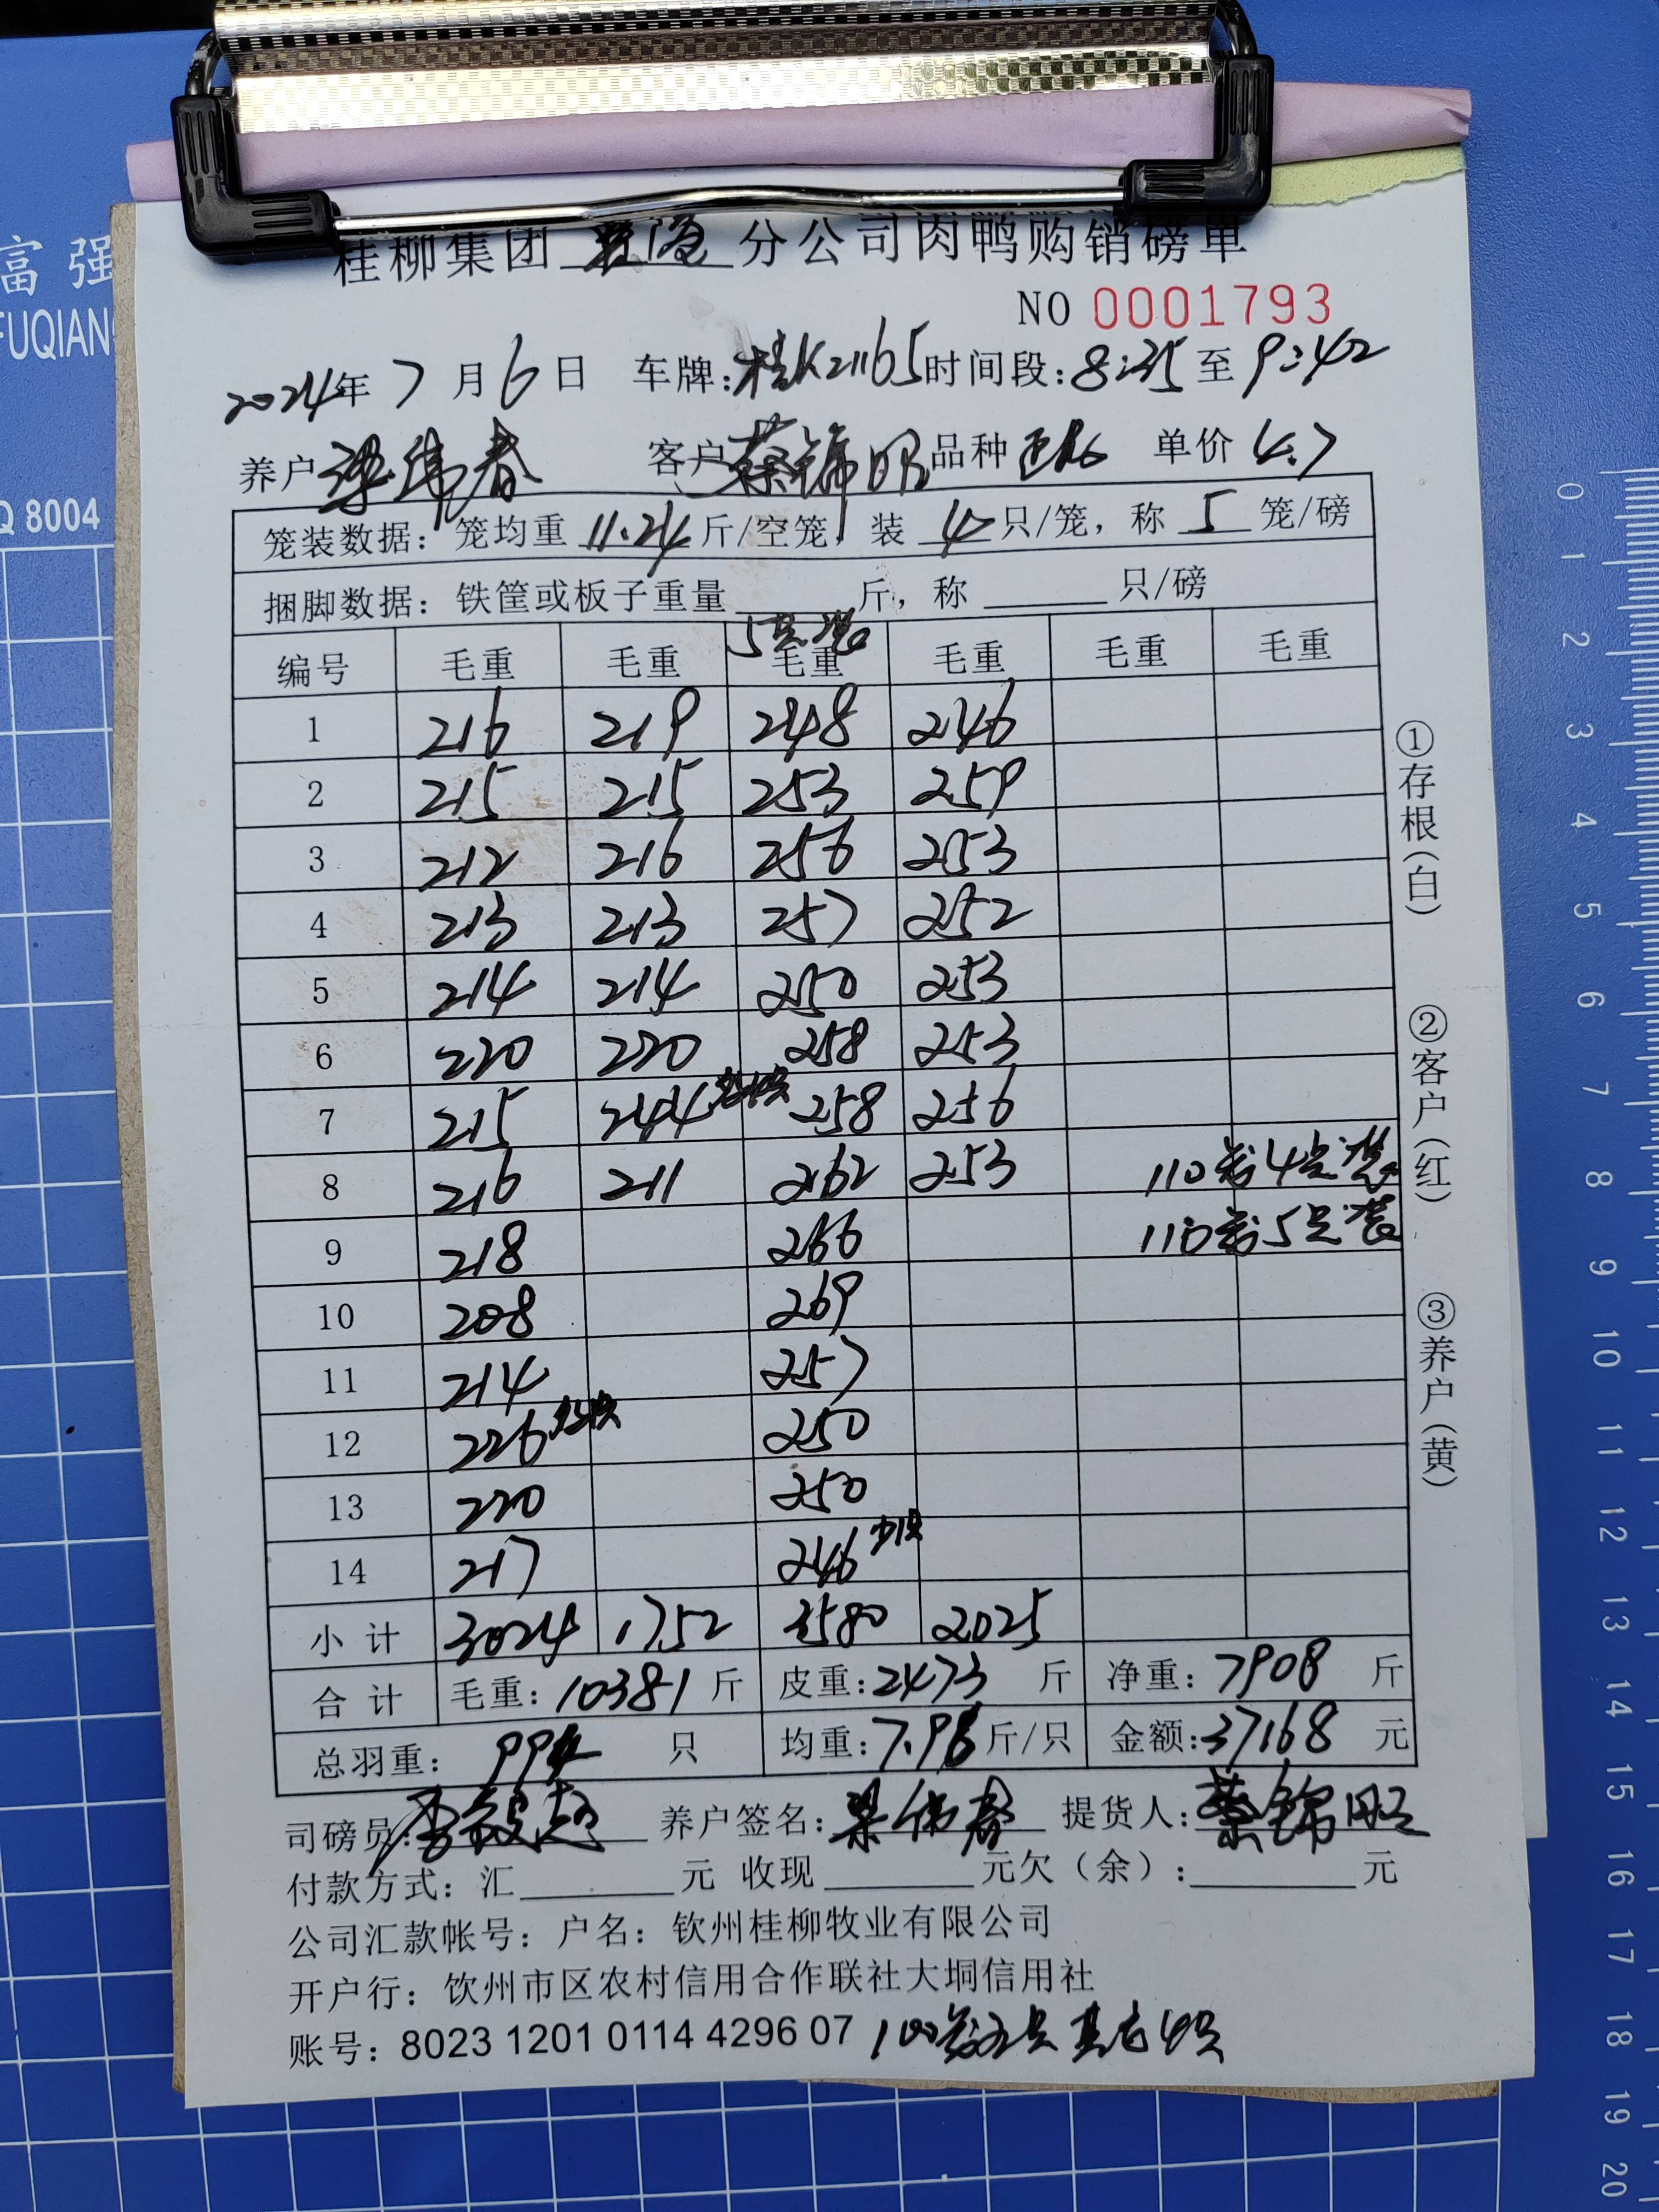 富强
FUQIANG
Q 8004
桂柳集团 分公司肉鸭购销磅单
NO 0001793
2024年 7 月 6 日 车牌:桂K21165 时间段:8:35 至 9:42
养户 梁伟春 客户 蔡锦旺 品种 单价 4.7
笼装数据: 笼均重 11.24 斤/空笼, 装 4 只/笼, 称 5 笼/磅
捆脚数据: 铁筐或板子重量 斤, 称 只/磅
5只装
编号 毛重 毛重 毛重 毛重 毛重 毛重
1 216 219 248 246
2 215 215 253 259
3 212 216 256 253
4 213 213 257 252
5 214 214 250 253
6 220 220 258 253
7 215 244 258 256
8 216 211 262 253 110笼4只装
9 218 266 110笼5只装
10 208 269
11 214 257
12 226 250
13 220 250
14 217 246 少1只
小计 3024 1752 3580 2025
合计 毛重: 10381 斤 皮重: 2473 斤 净重: 7908 斤
总羽重: 994 只 均重: 7.96 斤/只 金额: 37168 元
司磅员: 养户签名: 梁伟春 提货人: 蔡锦旺
付款方式: 汇 元 收现 元欠(余): 元
公司汇款帐号: 户名: 钦州桂柳牧业有限公司
开户行: 饮州市区农村信用合作联社大垌信用社
账号: 8023 1201 0114 4296 07
①存根(白) ②客户(红) ③养户(黄)
0 1 2 3 4 5 6 7 8 9 10 11 12 13 14 15 16 17 18 19 20